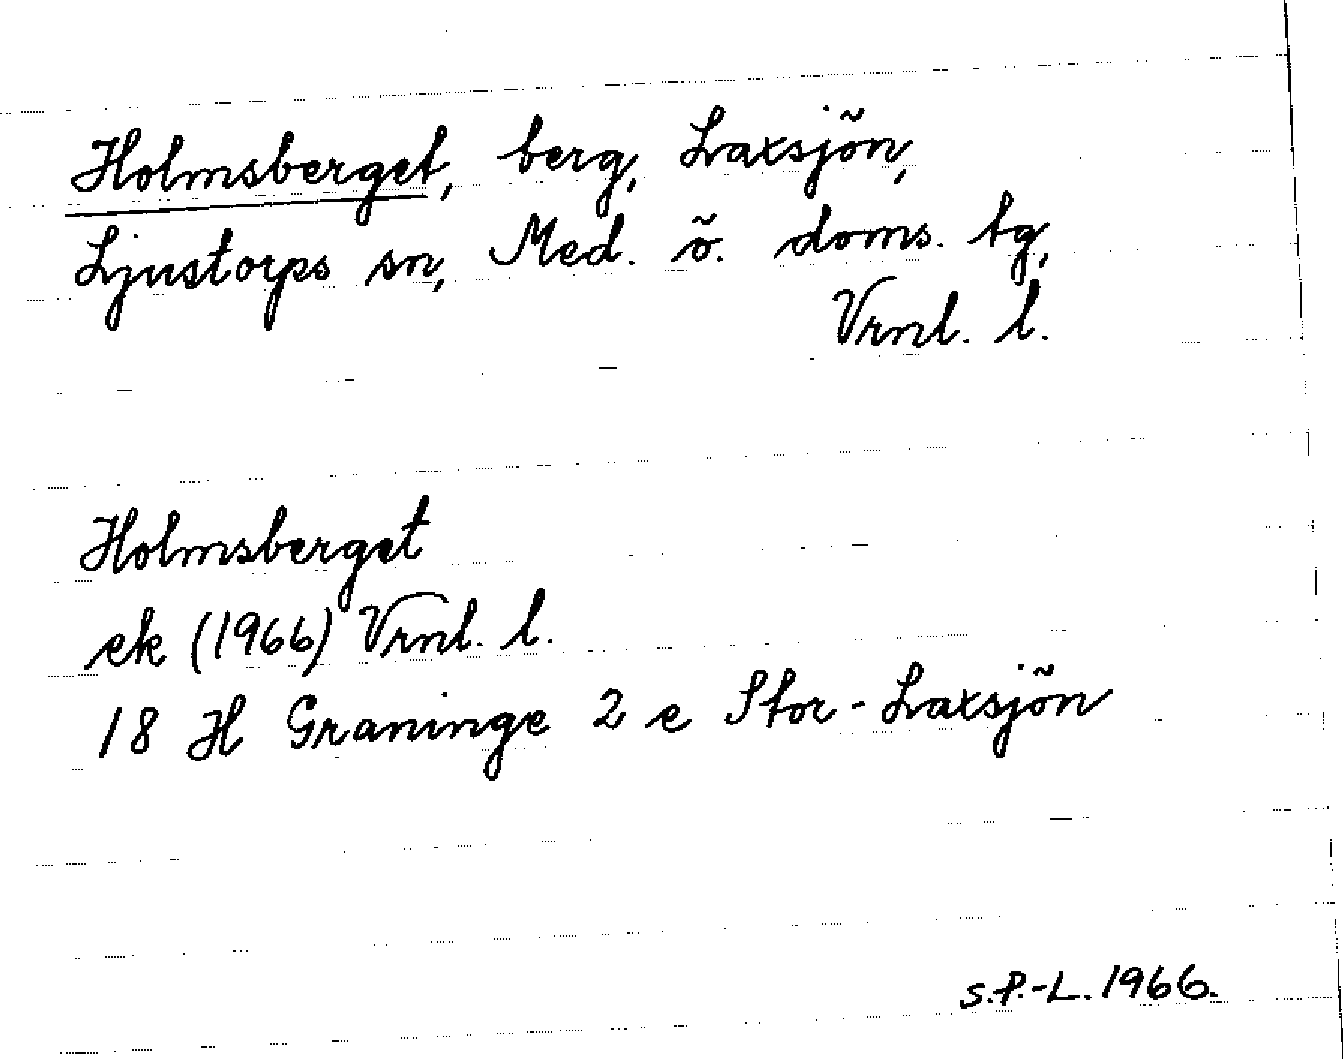 Holmsberget, berg, Laxsjön,
Ljustorps sn, Med. ö. doms. tg,
Vrnl. l.
Holmsberget
ek (1966) Vrnl. l.
18 H Graninge 2 e Stor-Laxsjön
S.P.-L. 1966.